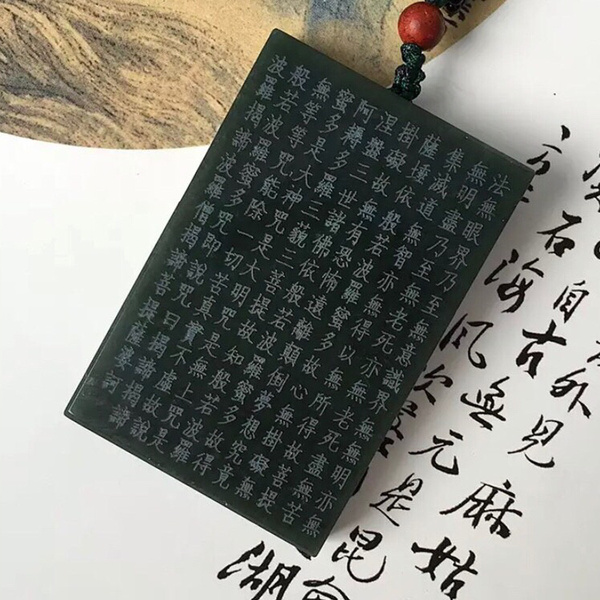 法無眼界乃至無意識界無無明亦無
無明盡乃至無老死亦無老死盡無苦
集滅道無智亦無得以無所得故菩提
薩埵依般若波羅蜜多故心無掛礙無
掛礙故無有恐怖遠離顛倒夢想究竟
涅槃三世諸佛依般若波羅蜜多故得
阿耨多羅三藐三菩提故知般若波羅
蜜多是大神咒是大明咒是無上咒是
無等等咒能除一切苦真實不虛故說
般若波羅蜜多咒即說咒曰揭諦揭諦
波羅揭諦波羅僧揭諦菩提薩婆訶
外見麻姑
自古無元是昆
石海風
湖